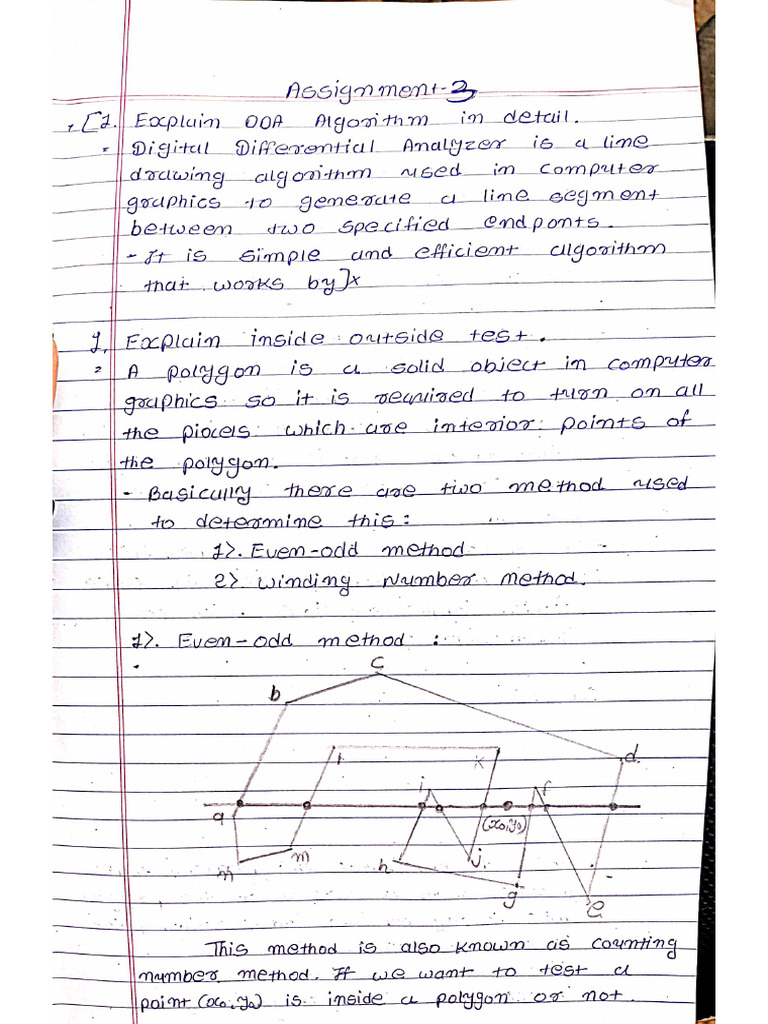 Assignment-3
[1. Explain DDA Algorithm in detail.
- Digital Differential Analyzer is a line
drawing algorithm used in computer
graphics to generate a line segment
between two specified endponts.
- It is simple and efficient algorithm
that works by]x
1. Explain inside outside test.
- A polygon is a solid object in computer
graphics so it is required to turn on all
the pixels which are interior points of
the polygon.
- Basically there are two method used
to determine this:
1>. Even-odd method
2> winding Number method.
1>. Even-odd method :
c
b
d
l
k
i
f
a
(x0,y0)
m
j
n
h
g
e
This method is also known as counting
number method. If we want to test a
point (x0,y0) is inside a polygon or not.